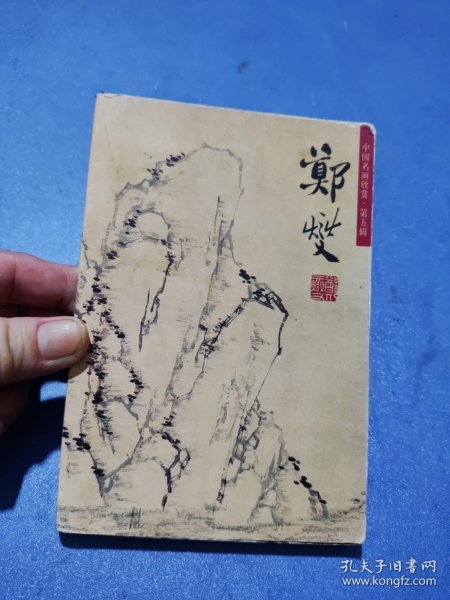 中国名画欣赏·第五辑
鄭燮
孔夫子旧书网
www.kongfz.com